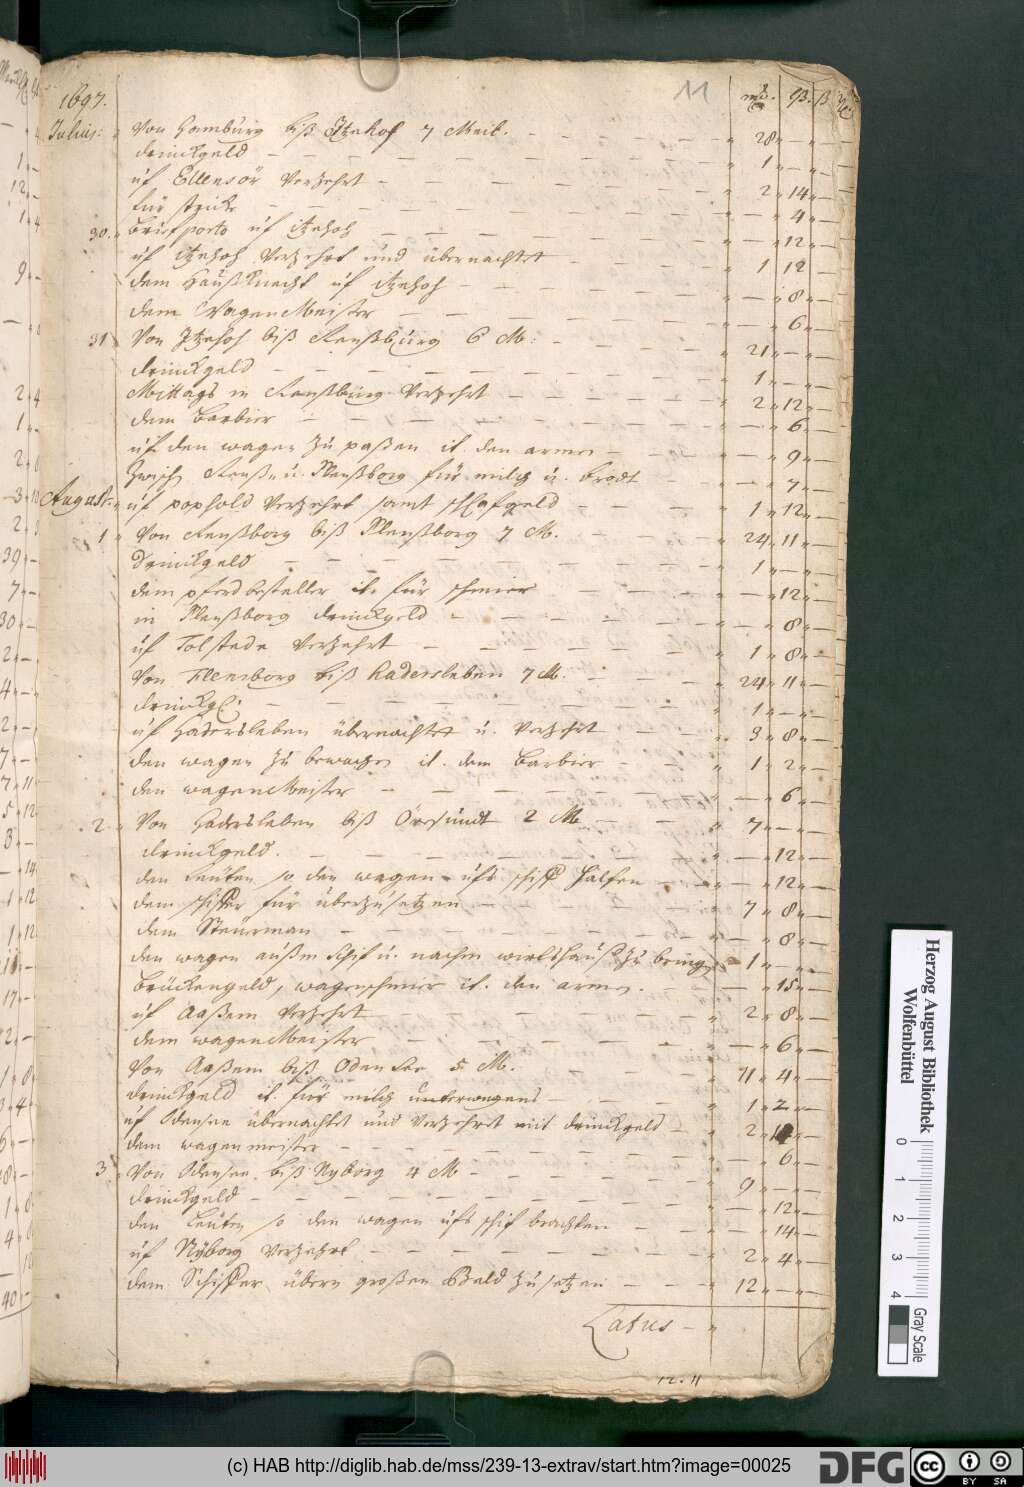 11
1697.
Julius: Von Hamburg biß Itzehof 7 Meil. — 28 — —
drinckgeld — 1 — —
uf Ellensör verzehrt — 2 14 —
für stricke — — 4 —
30. Briefporto uf itzehoh — — 12 —
uf itzehoh verzehrt und übernachtet — 1 12 —
dem Haußknecht uf itzehoh — — 8 —
dem WagenMeister — — 6 —
31 Von Itzehoh biß Renßburg 6 M: — 21 — —
drinckgeld — 1 — —
Mittags in Renßburg verzehrt — 2 12 —
dem Barbier — — 6 —
uf den wagen zu paßen it. den armen — — 9 —
Zwisch Renß- u. Flenßborg für milch u. brodt — — 7 —
August: uf pophold verzehrt samt schlafgeld — 1 12 —
1 Von Renßborg biß Flenßborg 7 M. — 24 11 —
drinckgeld — 1 — —
dem pferdbesteller it. für schmier — — 12 —
in Flenßborg drinckgeld — — 8 —
uf Tolstede verzehrt — 1 8 —
Von Flensborg biß Hadersleben 7 M. — 24 11 —
drinckgl: — 1 — —
uf Hadersleben übernachtet u. verzehrt — 3 8 —
den wagen zu bewachen it. dem Barbier — 1 2 —
den wagenMeister — — 6 —
2. Von Hadersleben biß Öresundt 2 M — 7 — —
drinckgeld. — — 12 —
den Leuten so den wagen ufs schiff hälfen — — 12 —
dem schiffer für überzusetzen — 7 8 —
dem Steurman — — 8 —
den wagen außm schif u. nachm wirtshauß zu bringen — 1 — —
Brückengeld, wagenschmier it. den armen. — — 15 —
uf Aaßem verzehrt — 2 8 —
dem wagenMeister — — 6 —
Von Aaßem biß Odensee 5 M. — 11 4 —
drinckgeld it. für milch unterwegens — 1 2 —
uf Odensee übernachtet und verzehret mit drinckgeld — 2
dem wagenmeister — — 6 —
3 Von Odensee biß Nyborg 4 M — 9 — —
drinckgeld — — 12 —
den Leuten so den wagen ufs schif brachten — — 14 —
uf Nyborg verzehrt — 2 4 —
dem Schiffer übern großen Beld zu setzen — 12 — —
Latus —
12. 11
Herzog August Bibliothek
Wolfenbüttel
0 1 2 3 4
Gray Scale
(c) HAB http://diglib.hab.de/mss/239-13-extrav/start.htm?image=00025
DFG
cc BY SA